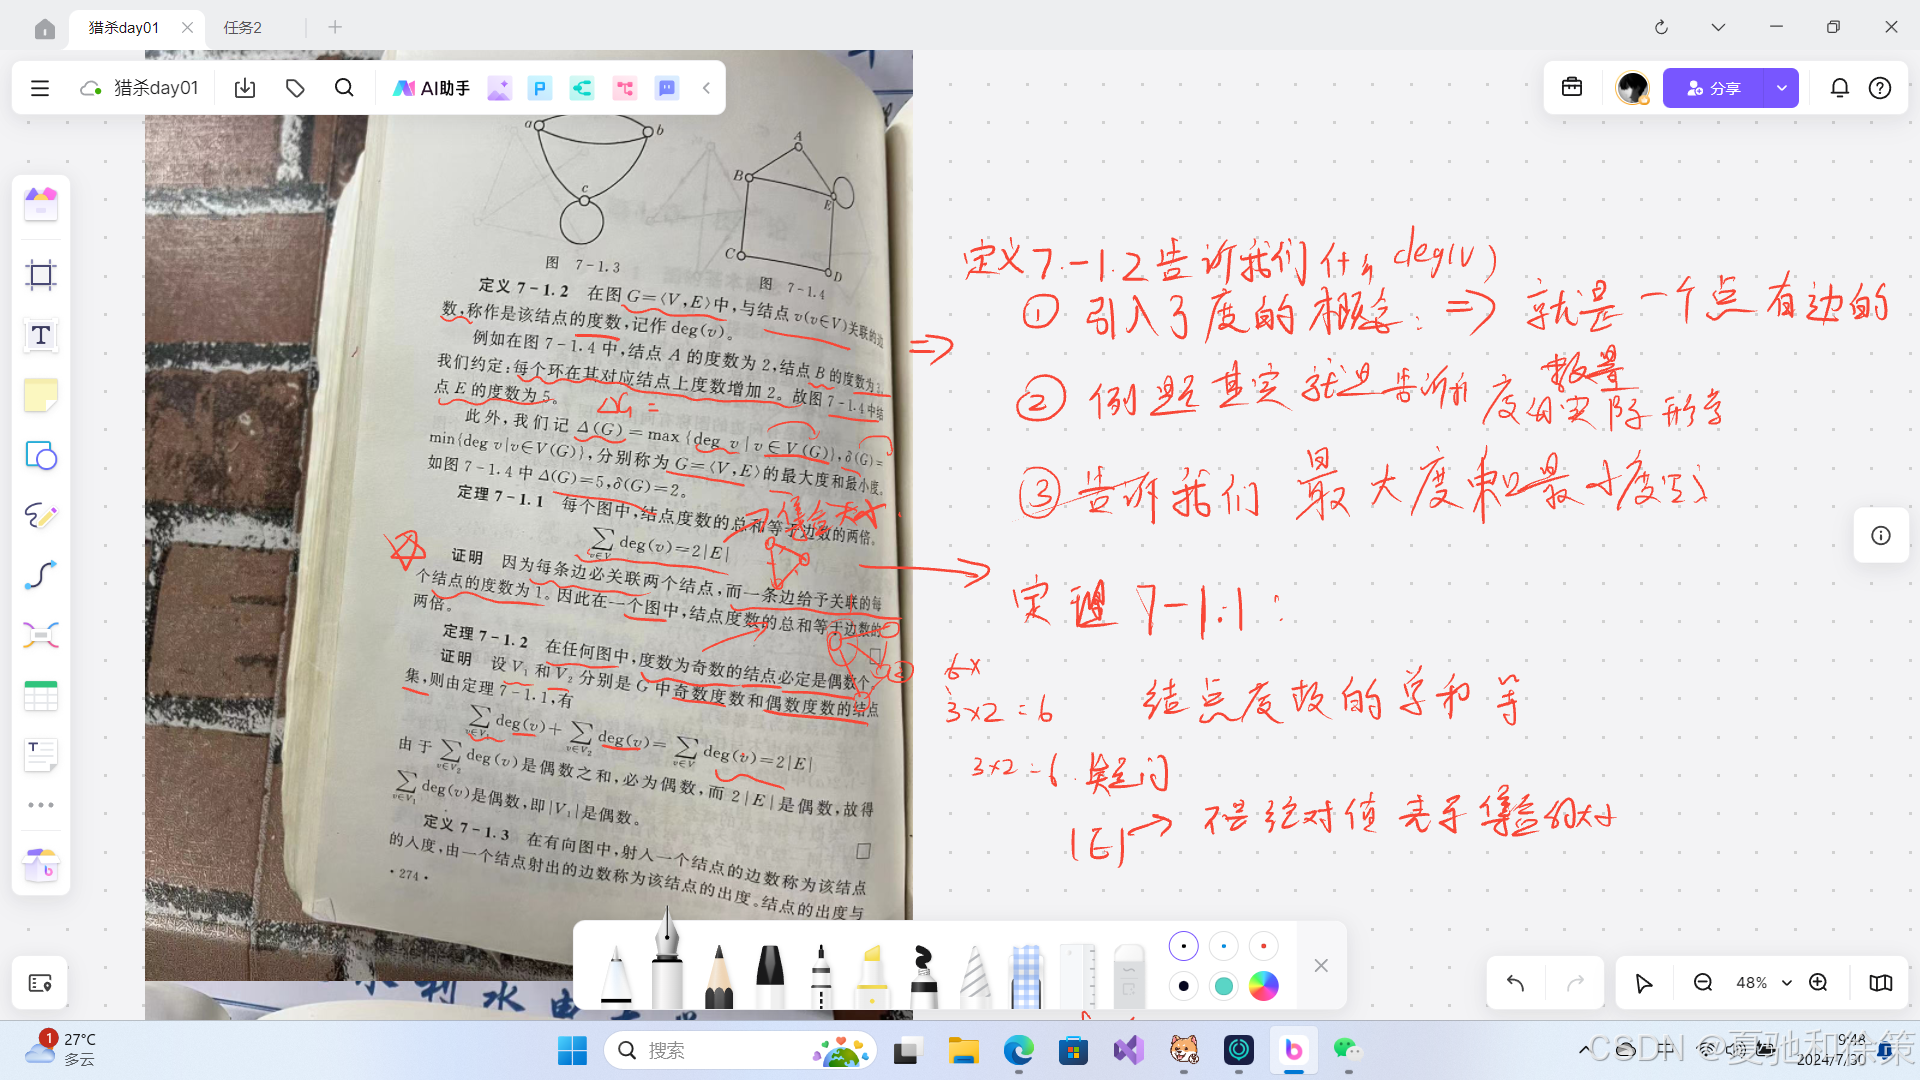 猎杀day01
任务2
猎杀day01
AI助手
分享
a
b
c
图 7-1.3
A
B
E
C
D
图 7-1.4
定义 7-1.2 在图 G=⟨V,E⟩中,与结点 v(v∈V)关联的边
数,称作是该结点的度数,记作 deg(v)。
例如在图 7-1.4 中,结点 A 的度数为 2,结点 B 的度数为 3,
我们约定:每个环在其对应结点上度数增加 2。故图 7-1.4 中结
点 E 的度数为 5。
ΔG =
此外,我们记 Δ(G)=max{deg v|v∈V(G)},δ(G)=
min{deg v|v∈V(G)},分别称为 G=⟨V,E⟩的最大度和最小度。
如图 7-1.4 中 Δ(G)=5,δ(G)=2。
定理 7-1.1 每个图中,结点度数的总和等于边数的两倍。
集合大小
∑ deg(v)=2|E|
v∈V
证明 因为每条边必关联两个结点,而一条边给予关联的每
个结点的度数为 1。因此在一个图中,结点度数的总和等于边数的
两倍。
定理 7-1.2 在任何图中,度数为奇数的结点必定是偶数个
证明 设 V₁ 和 V₂ 分别是 G 中奇数度数和偶数度数的结点
集,则由定理 7-1.1,有
∑ deg(v)+ ∑ deg(v)= ∑ deg(v)=2|E|
v∈V₁ v∈V₂ v∈V
由于 ∑ deg(v)是偶数之和,必为偶数,而 2|E|是偶数,故得
v∈V₂
∑ deg(v)是偶数,即|V₁|是偶数。
v∈V₁
定义 7-1.3 在有向图中,射入一个结点的边数称为该结点
的入度,由一个结点射出的边数称为该结点的出度。结点的出度与
·274·
定义7-1.2告诉我们什么 deg(v)
① 引入了度的概念: => 就是一个点有边的
数量
② 例题其实就是告诉我 度的实际形式
③ 告诉我们 最大度和最小度
定理 7-1.1:
6×
3×2=6
结点度数的总和等
3×2=6. 疑问
|E| → 不是绝对值 表示集合的大小
48%
1
27°C
多云
搜索
中
9:48
2024/7/30
CSDN @夏驰和徐策